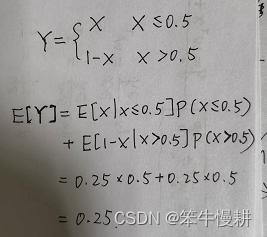 Y={ X X ≤0.5
1-X X >0.5
E[Y]= E[X|X≤0.5]P(X≤0.5)
+ E[1-X|X>0.5]P(X>0.5)
= 0.25 ×0.5+0.25 ×0.5
= 0.25
CSDN @笨牛慢耕